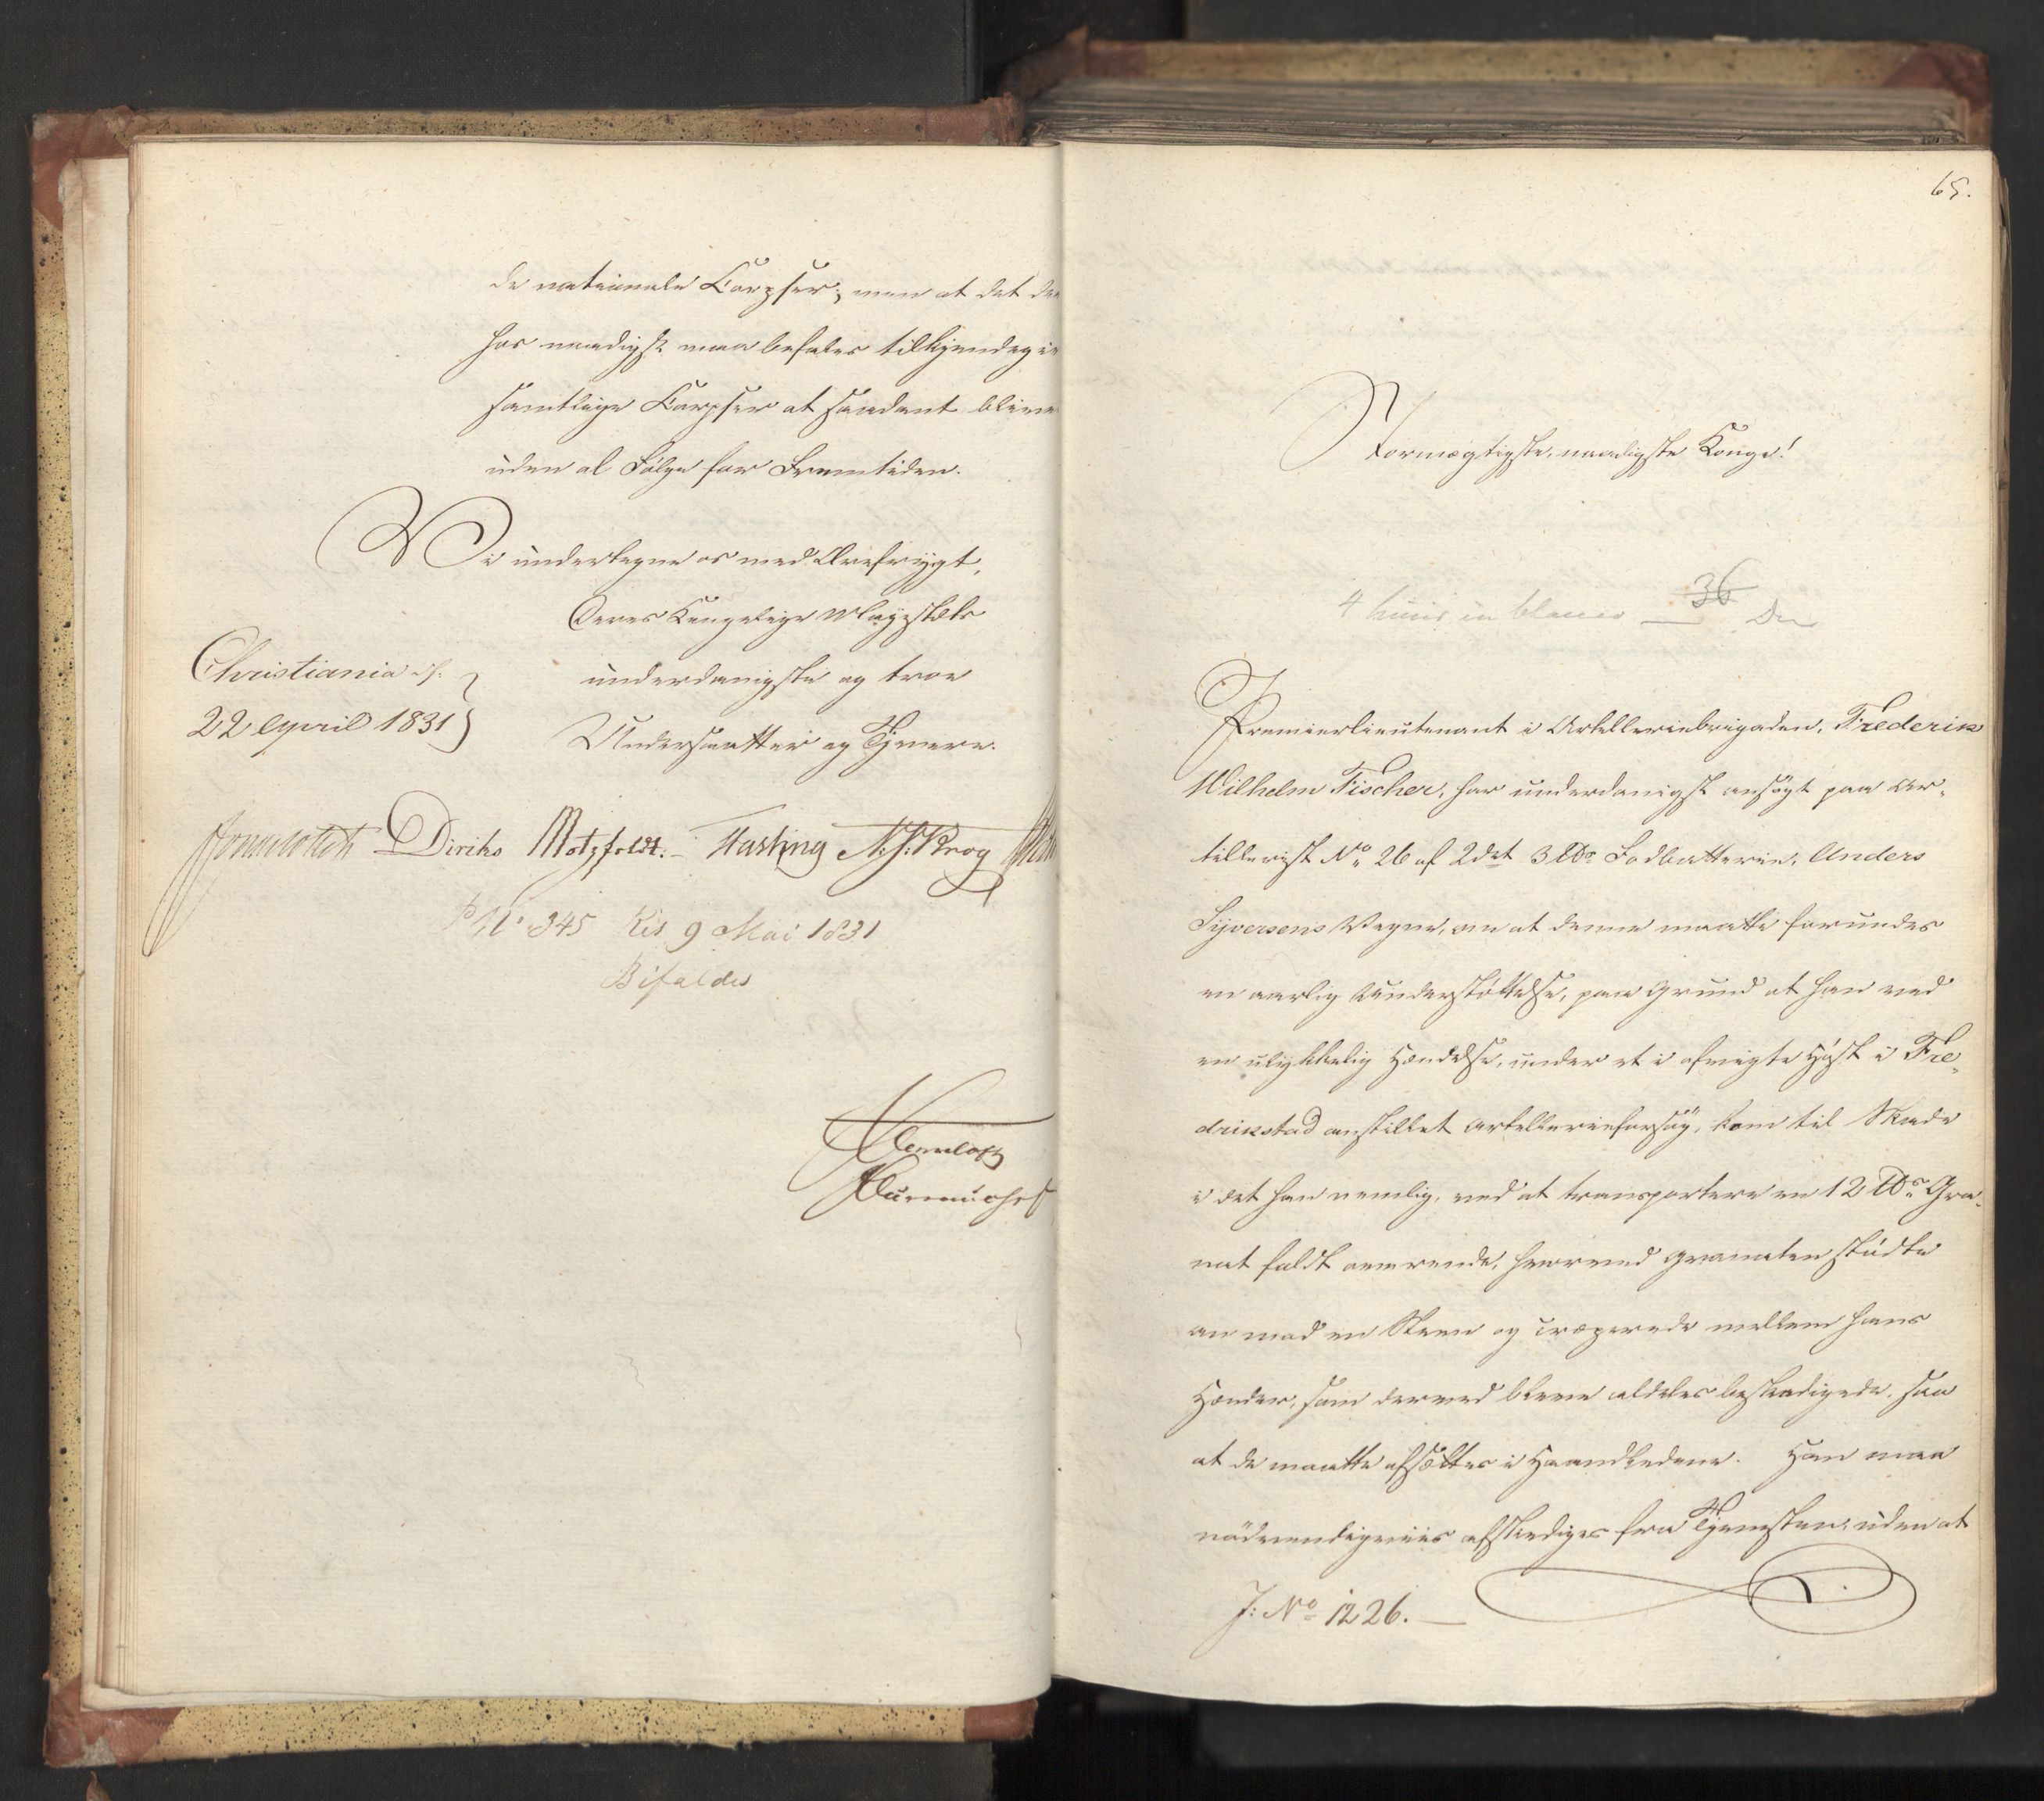 de nationale Corpser; men at det der
hos naadigst maa befales tilkjendegivet
samtlige Corpser at saadant bliver
uden al Følge for Fremtiden.
Vi undertegne os med Ærefrygt,
Deres Kongelige Majestæts
Christiania d.
underdanigste og troe
22 April 1831
Undersaatter og Tjenere.
Diriks Motzfeldt. Fasting N. J. Krog
No 345 Res 9 Mai 1831
Bifaldes
65.
Stormægtigste, naadigste Konge!
36
Premierlieutenant i Artilleriebrigaden, Frederik
Wilhelm Fischer, har underdanigst ansøgt paa Ar-
tillerist No 26 af 2det 3 ℔s Fodbatterie, Anders
Syversens Vegne, om at denne maatte forundes
en aarlig Understøttelse, paa Grund at han ved
en ulykkelig Hændelse, under et i afvigte Høst i Fre-
drikstad anstillet Artillerieforsøg, kom til Skade
i det han nemlig, ved at transportere en 12 ℔s Gra-
nat faldt omrende, hvorved Granaten stødte
an mod en Steen og creperede mellem hans
Hænder, som derved bleve aldeles beskadigede, saa
at de maatte afsættes i Haandledene. Han maa
nødvendigviis afskediges fra Tjenesten, uden at
J: No 1226.